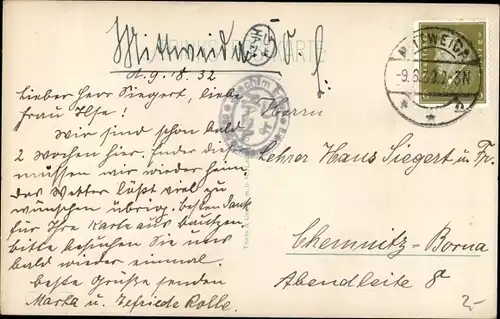 Mittweida
d. 9. 8. 32
MITTWEIDA
-9.8.32
Lieber Herr Siegert, liebe
Frau Ilse!
Wir sind schon bald
2 Wochen hier. Ende dieser
müssen wir wieder heim
das Wetter läßt viel zu
wünschen übrig. Besten Dank
für Ihre Karte aus Bautzen.
bitte besuchen Sie uns
bald wieder einmal.
beste Grüße senden
Marta u. Rolle.
Herrn
Lehrer Hans Siegert u. Fr.
Chemnitz-Borna
Abendleite 8
2-